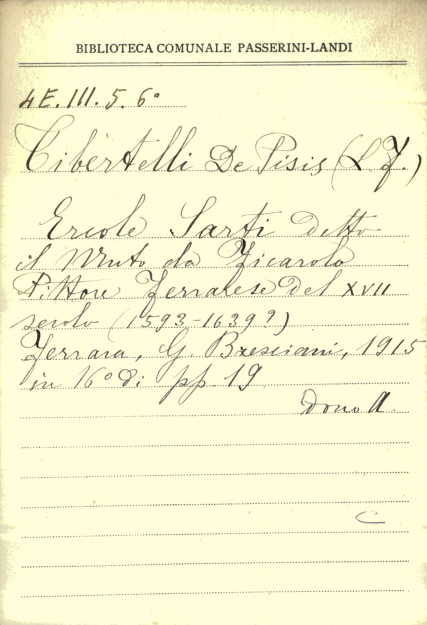 BIBLIOTECA COMUNALE PASSERINI-LANDI
4E.III.5.6°
Tibertelli De Pisis (L F.)
Ercole Sarti detto
il Muto da Ficarolo
Pittore Ferrarese del XVII
secolo (1593-1639?)
Ferrara, G. Bresciani, 1915
in 16° di pp. 19
Dono A.